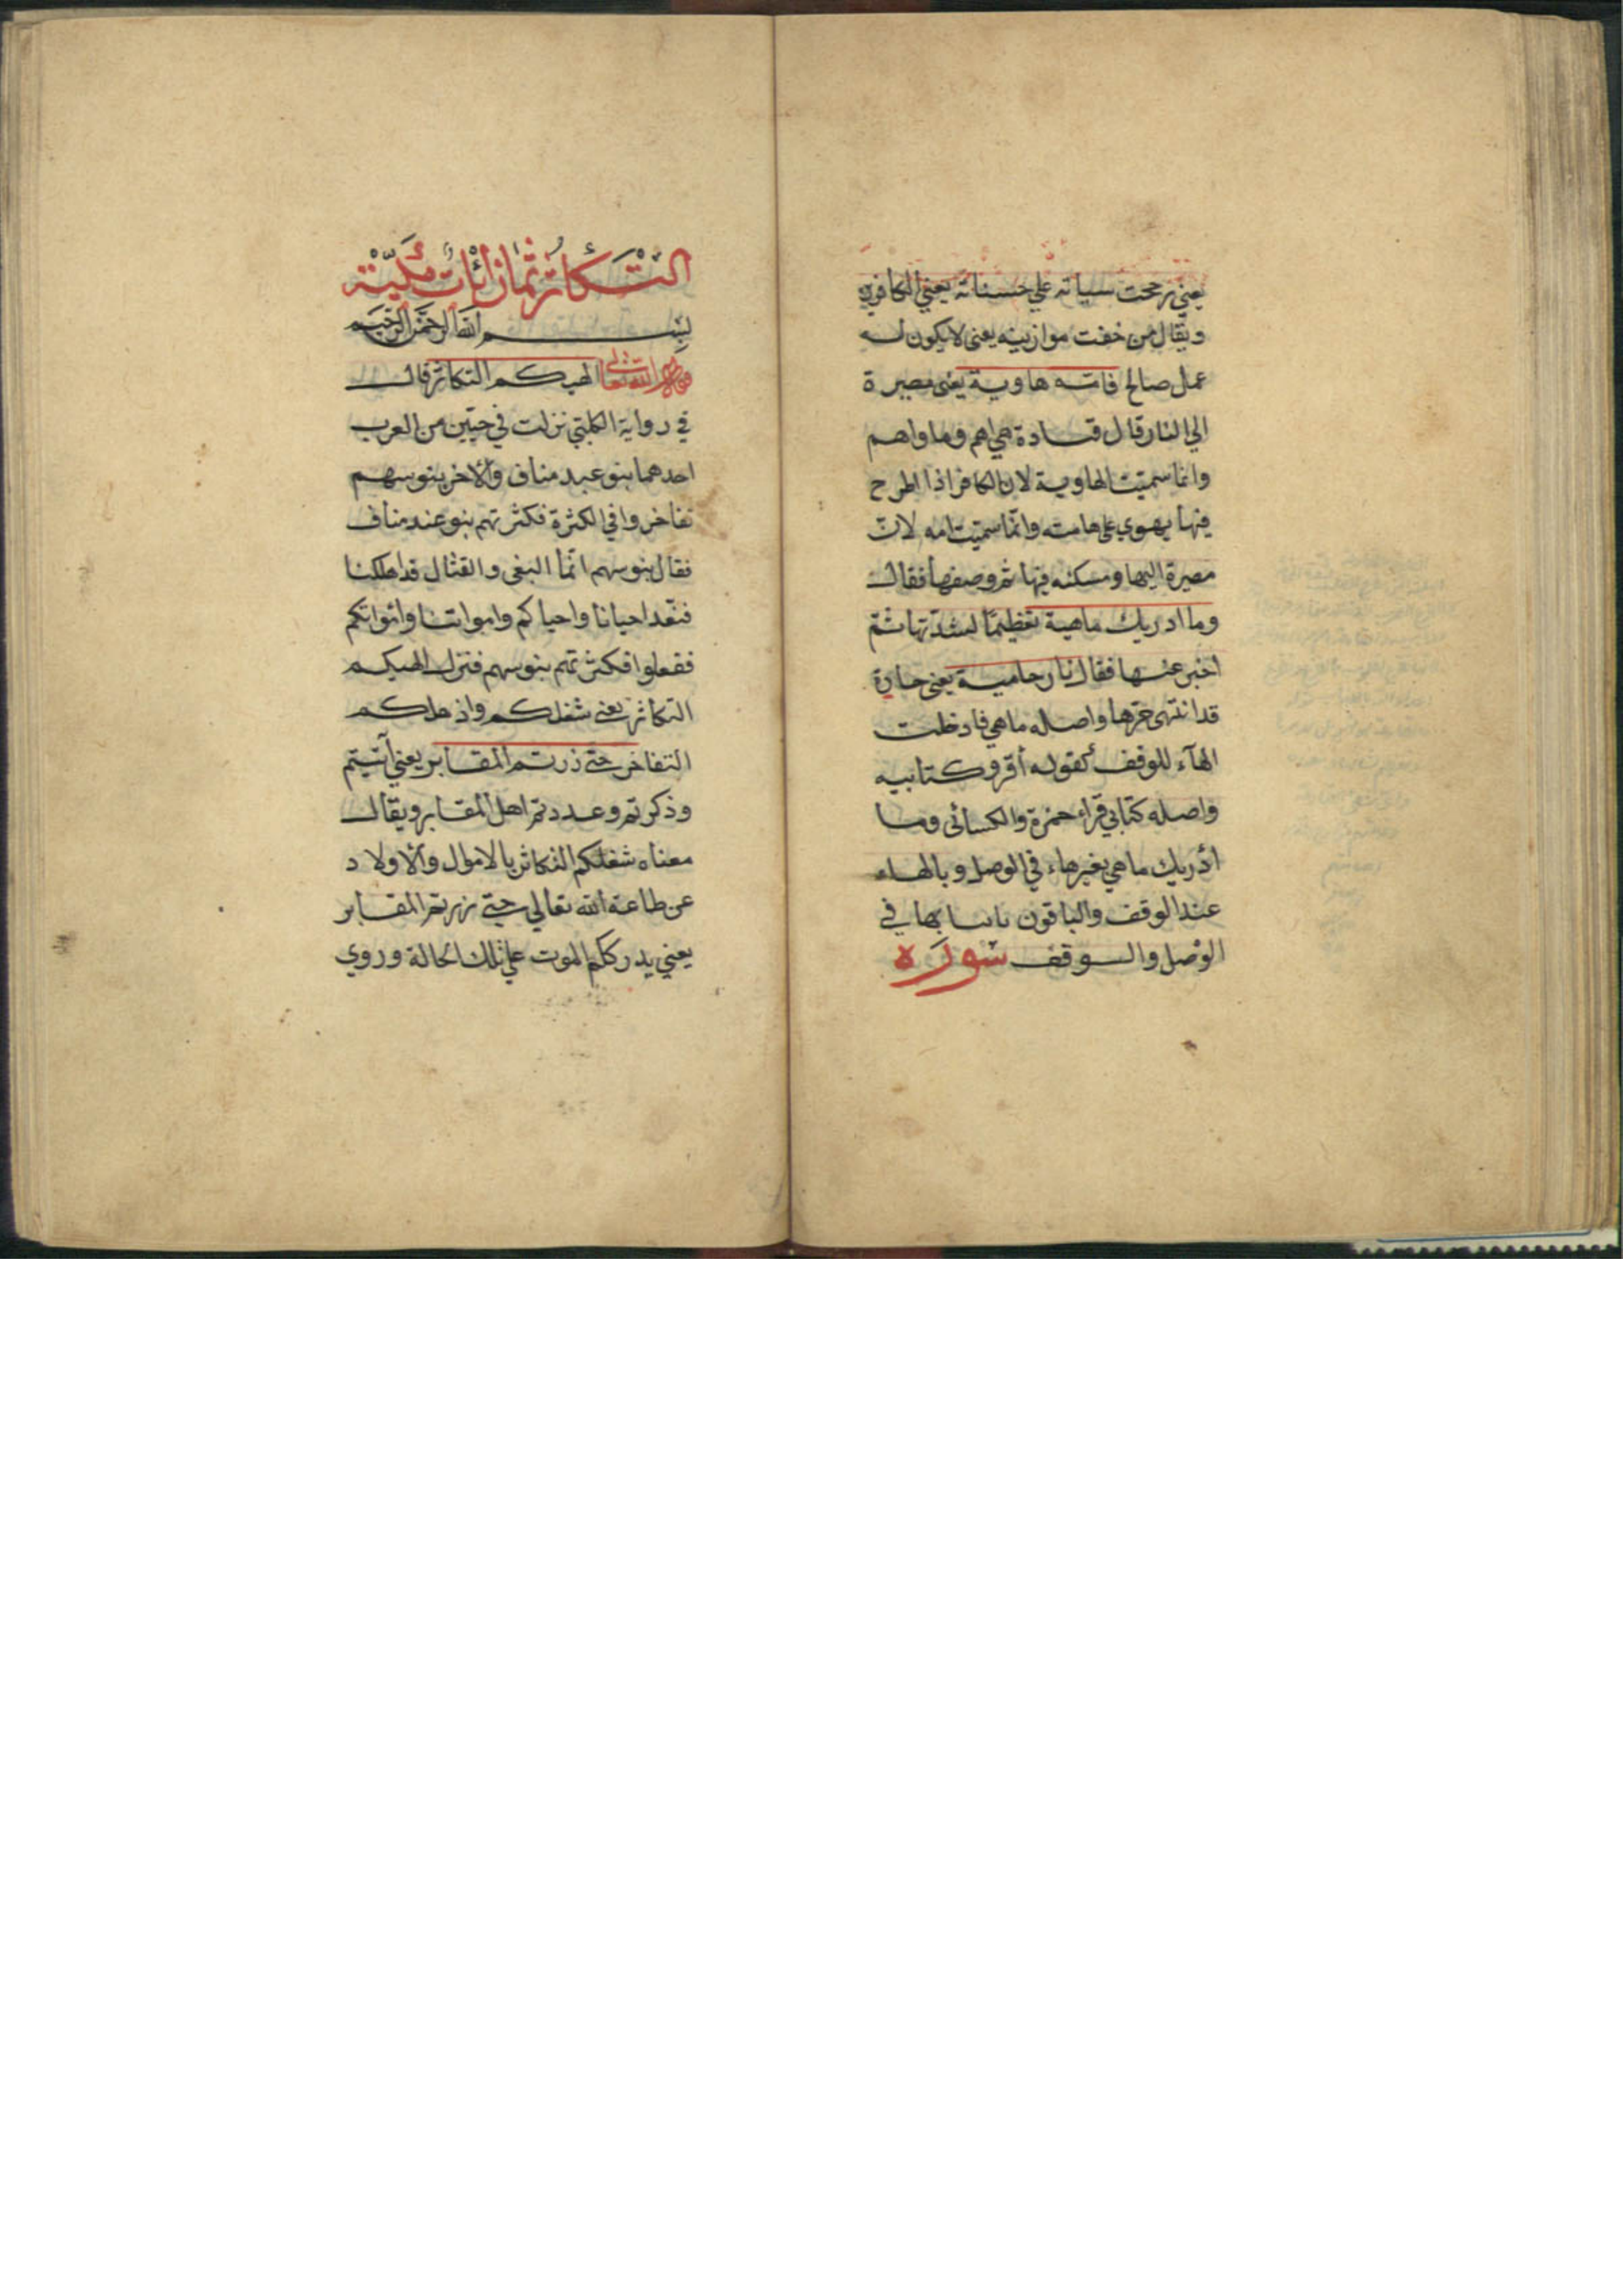 يعني رجحت سياته علي حسناته يعني الكافرين
ويقال من خفت موازينه يعنى لا يكون له
عمل صالح فامه هاوية يعنى مصيرة
الي النار قال قتادة هي امهم وماواهم
وانما سميت الهاوية لان الكافر اذا اطرح
فيها يهوي على هامته وانما سميت امه لان
مصيرة اليها ومسكنه فيها ثم وصفها فقال
وما ادريك ماهية تعظيمًا لشدتها ثم
اخبر عنها فقال نار حامية يعنى حارة
قد انتهى حرها واصله ما هي فادخلت
الهآء للوقف كقوله اقرؤ كتابيه
واصله كتابي قراء حمزة والكسائى وما
ادريك ما هي بغيرهاء في الوصل وبالهاء
عند الوقف والباقون باثباتها في
الوصل والوقف سورة
التكاثر ثمان ايات مكية
بسم الله الرحمن الرحيم
قوله تعالى الهيكم التكاثر قال
في رواية الكلبي نزلت في حيين من العرب
احدهما بنو عبد مناف والاخر بنو سهم
تفاخروا في الكثرة فكثرتهم بنو عبد مناف
فقال بنو سهم انما البغى والقتال قد اهلكنا
فنعد احيانا واحياكم وامواتنا وامواتكم
ففعلوا فكثرتهم بنو سهم فنزل الهيكم
التكاثر يعنى شغلكم واذهلكم
التفاخر حتى زرتم المقابر يعني اتيتم
وذكرتم وعددتم اهل المقابر ويقال
معناه شغلكم التكاثر بالاموال والاولاد
عن طاعة الله تعالي حتى زرتم المقابر
يعني يدرككم الموت علي تلك الحالة وروي